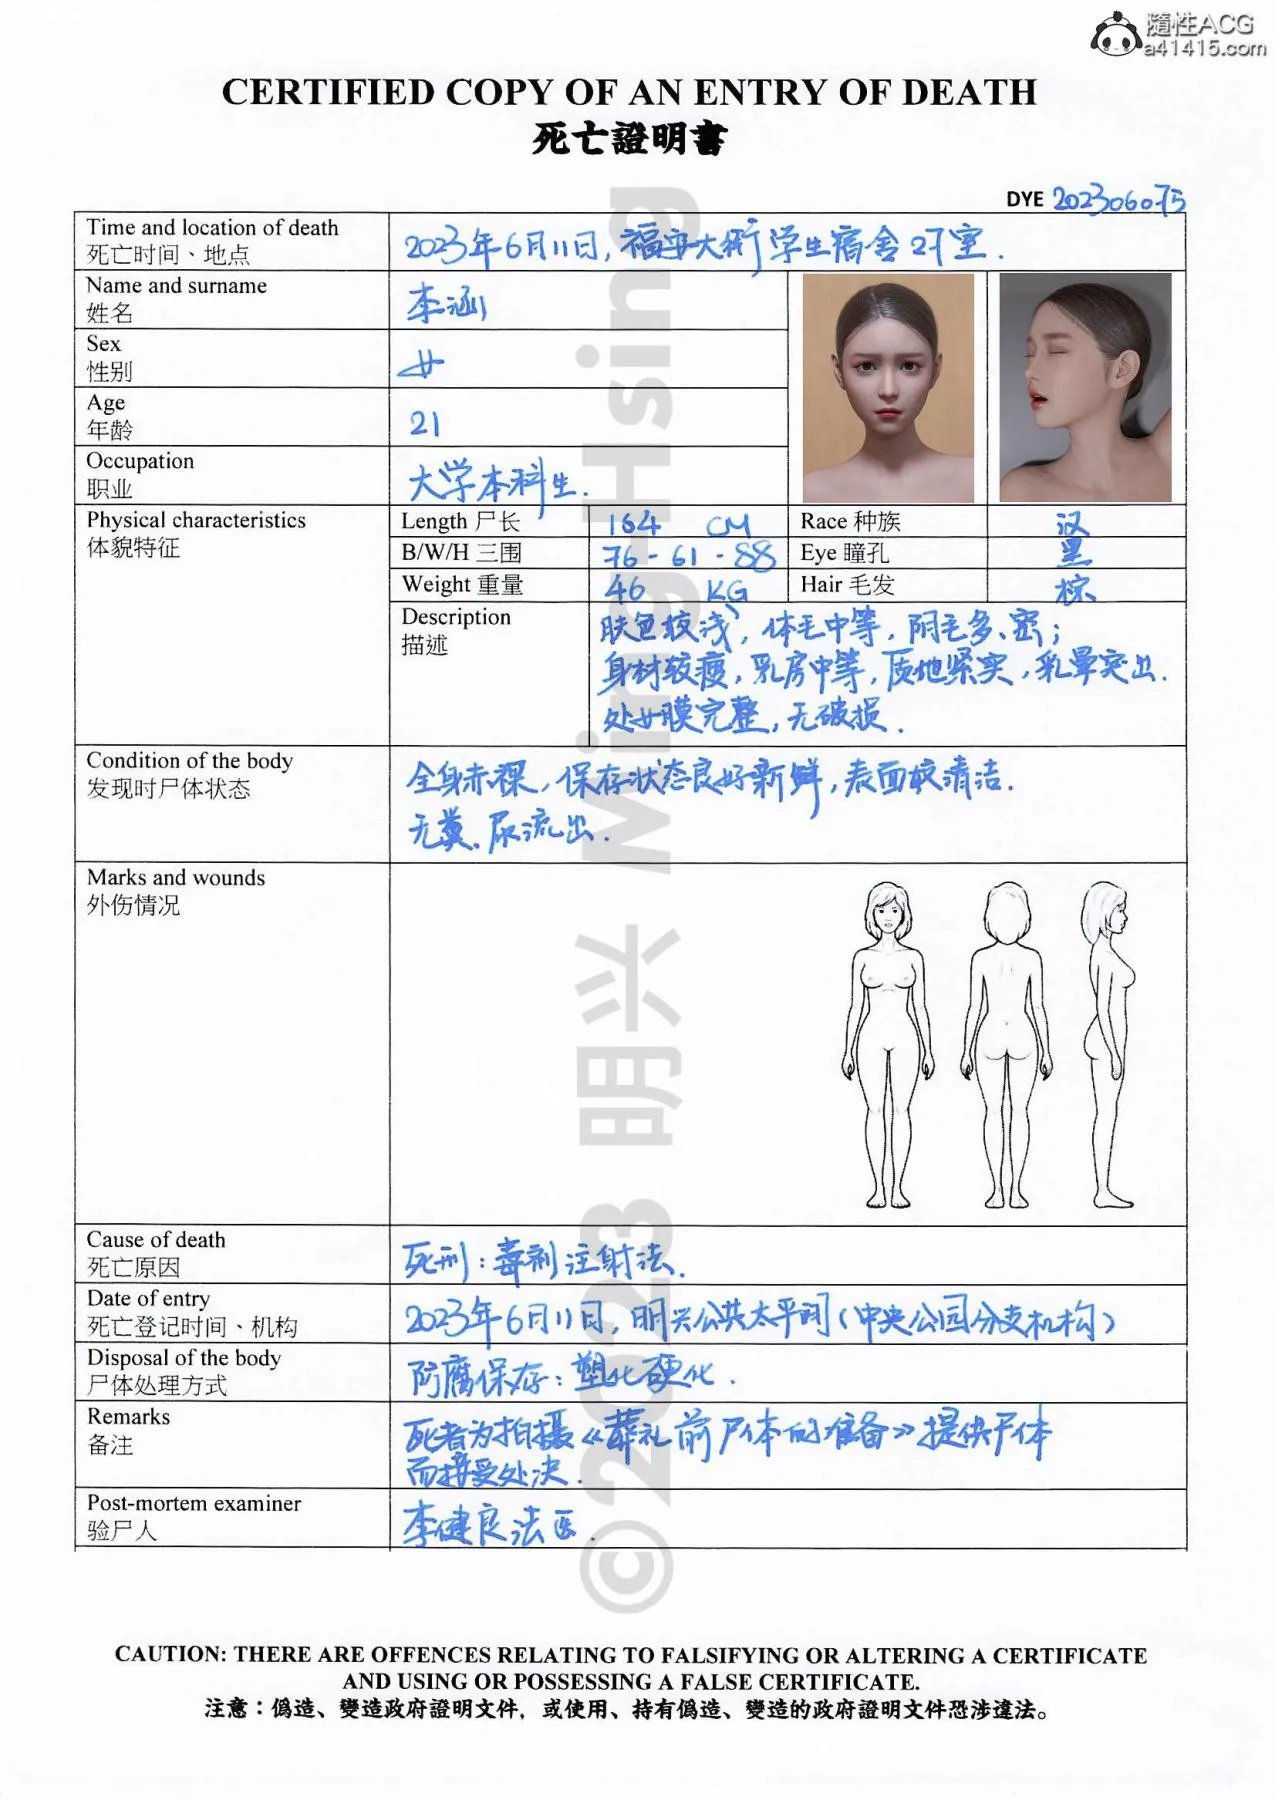 隨性ACG
a41415.com
CERTIFIED COPY OF AN ENTRY OF DEATH
死亡證明書
DYE 202306075
Time and location of death
死亡时间、地点
2023年6月11日, 福安大街学生宿舍27室.
Name and surname
姓名
李涵
Sex
性别
女
Age
年龄
21
Occupation
职业
大学本科生.
Physical characteristics
体貌特征
Length 尸长 164 CM Race 种族 汉
B/W/H 三围 76-61-88 Eye 瞳孔 黑
Weight 重量 46 KG Hair 毛发 棕
Description
描述
肤色较浅, 体毛中等, 阴毛多、密;
身材较瘦, 乳房中等, 质地紧实, 乳晕突出.
处女膜完整, 无破损.
Condition of the body
发现时尸体状态
全身赤裸, 保存状态良好新鲜, 表面较清洁.
无粪、尿流出.
Marks and wounds
外伤情况
Cause of death
死亡原因
死刑: 毒剂注射法.
Date of entry
死亡登记时间、机构
2023年6月11日, 明兴公共太平间(中央公园分支机构)
Disposal of the body
尸体处理方式
防腐保存: 塑化硬化.
Remarks
备注
死者为拍摄《葬礼前尸体的准备》提供尸体
而接受处决.
Post-mortem examiner
验尸人
李健良法医.
©2023 明兴 Ming-Hsing
CAUTION: THERE ARE OFFENCES RELATING TO FALSIFYING OR ALTERING A CERTIFICATE
AND USING OR POSSESSING A FALSE CERTIFICATE.
注意：偽造、變造政府證明文件，或使用、持有偽造、變造的政府證明文件恐涉違法。